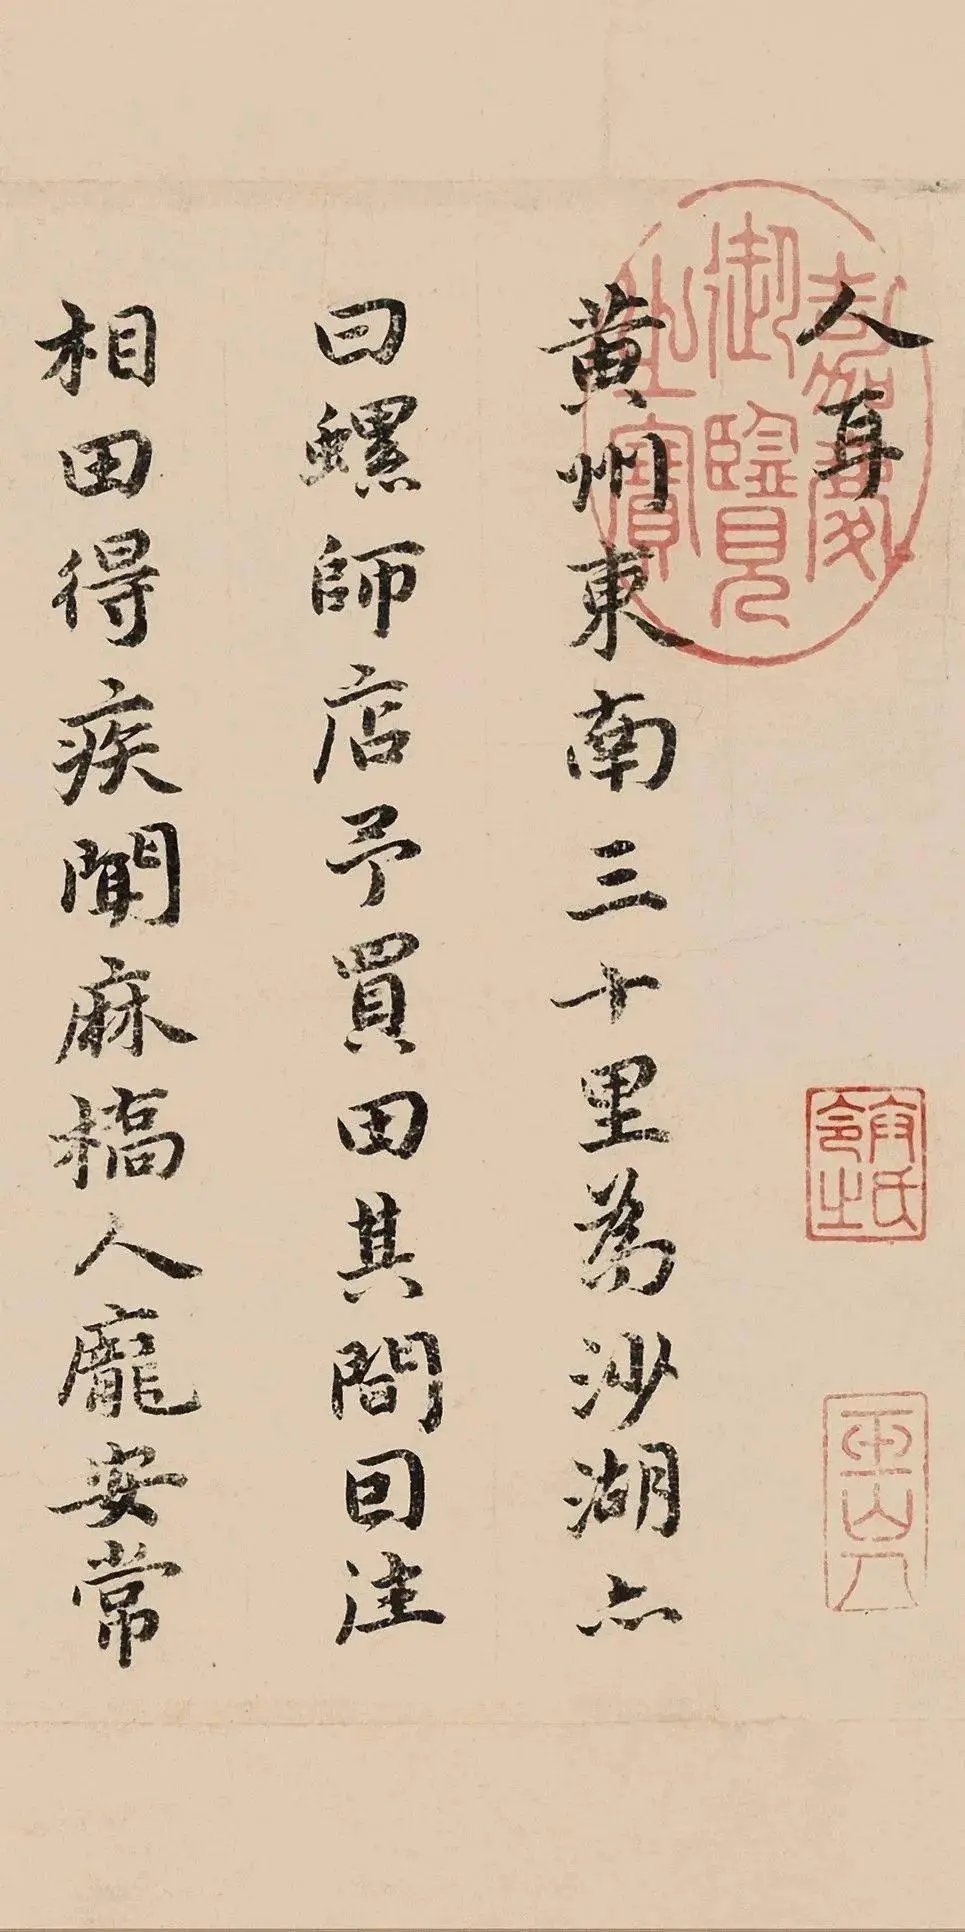 人耳
黄州東南三十里為沙湖亦
曰螺師店予買田其間回往
相田得疾聞麻橋人龐安常
嘉慶御覽之寶